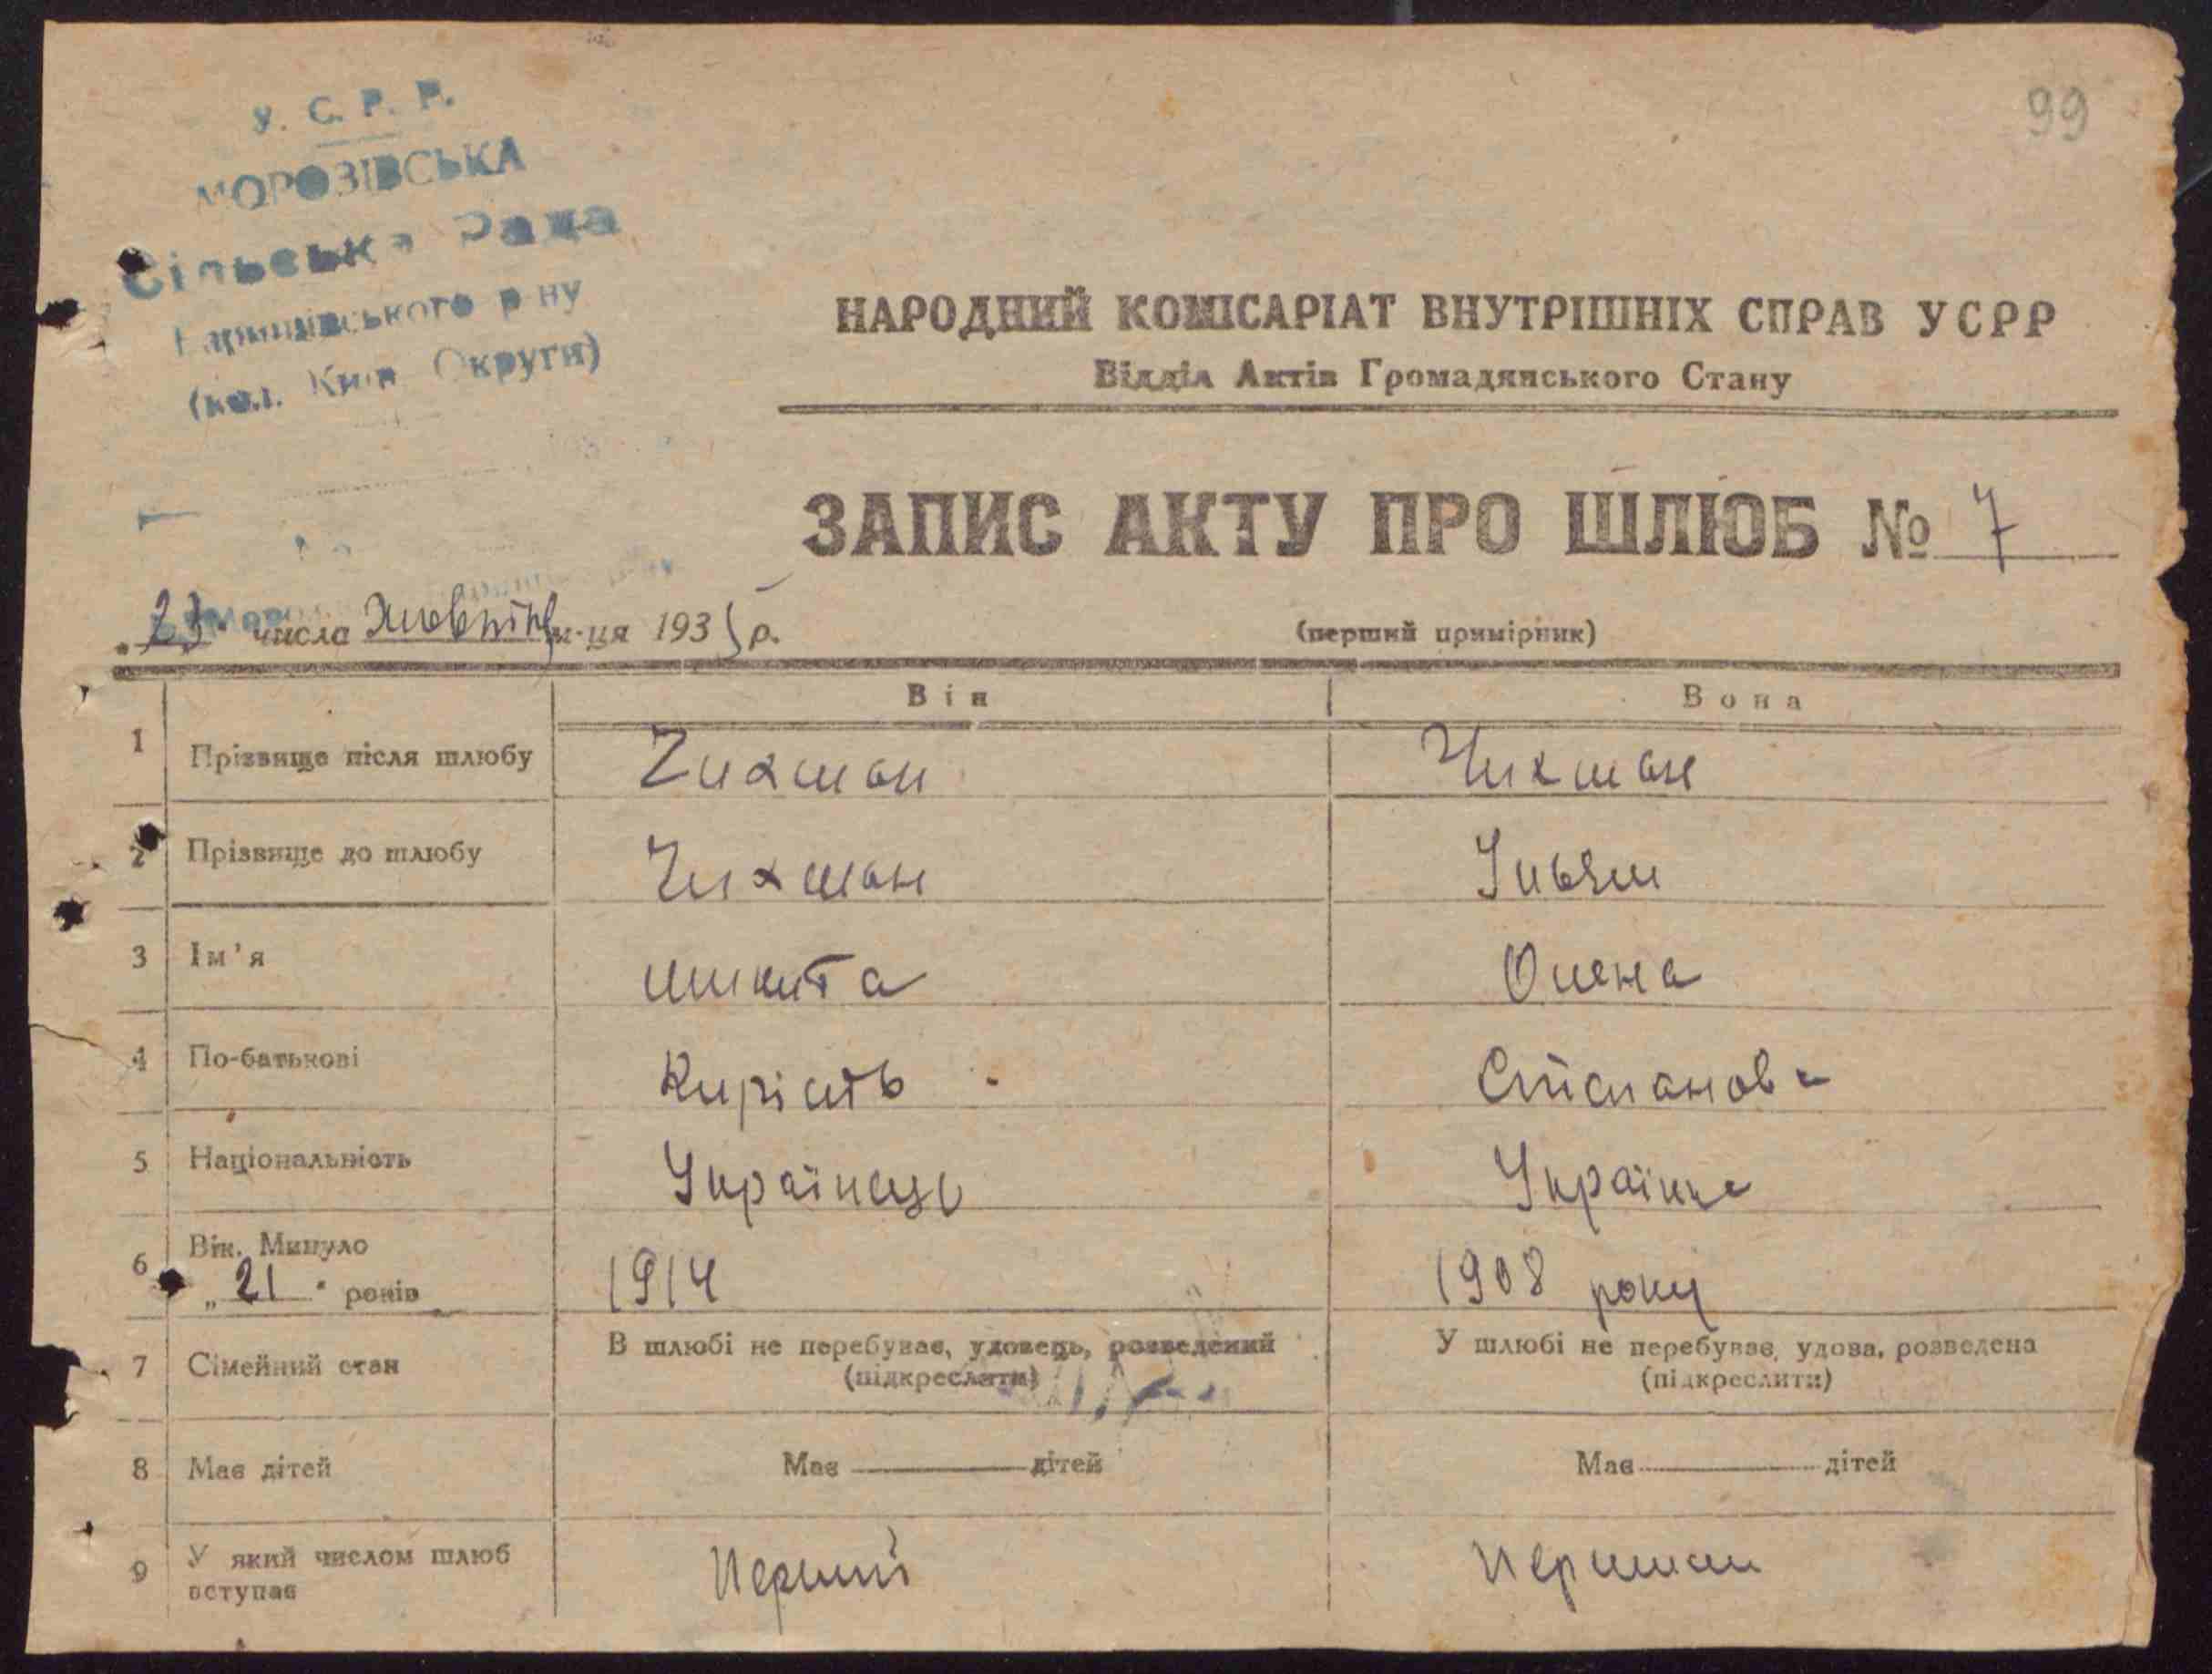 99
У. С. Р. Р.
МОРОЗІВСЬКА
Сільська Рада
Баришівського р-ну
(кол. Київ. Округи)
НАРОДНИЙ КОМІСАРІАТ ВНУТРІШНІХ СПРАВ УСРР
Відділ Актів Громадянського Стану
ЗАПИС АКТУ ПРО ШЛЮБ № 7
„23" числа Жовтня м-ця 1935 р.
(перший примірник)
Він Вона
1 Прізвище після шлюбу Чихман Чихман
2 Прізвище до шлюбу Чихман
3 Ім'я Микита Олена
4 По-батькові Степанова
5 Національність Українець Українка
6 Вік. Минуло „21" років 1914 1908 року
7 Сімейний стан В шлюбі не перебуває, удовець, розведений У шлюбі не перебуває, удова, розведена
(підкреслити) (підкреслити)
8 Має дітей Має дітей Має дітей
9 У який числом шлюб вступає Перший